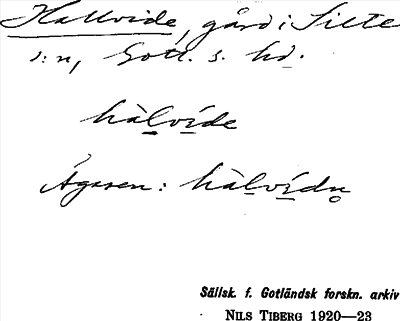 Hallvide, gård i Silte
s:n, Gotl. s. hd.
hàlvíde
Ägaren: hàlvídu̥
Sällsk. f. Gotländsk forskn. arkiv
NILS TIBERG 1920—23